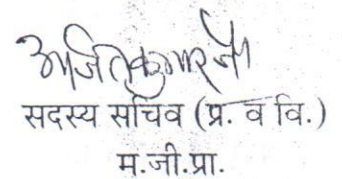 अजितकुमार जैन
सदस्य सचिव (प्र. व वि.)
म.जी.प्रा.